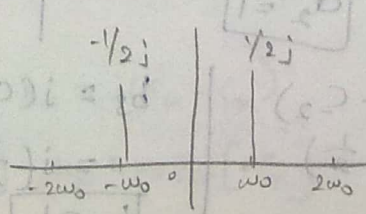 -1/2 j 1/2 j
-2ω0 -ω0 0 ω0 2ω0